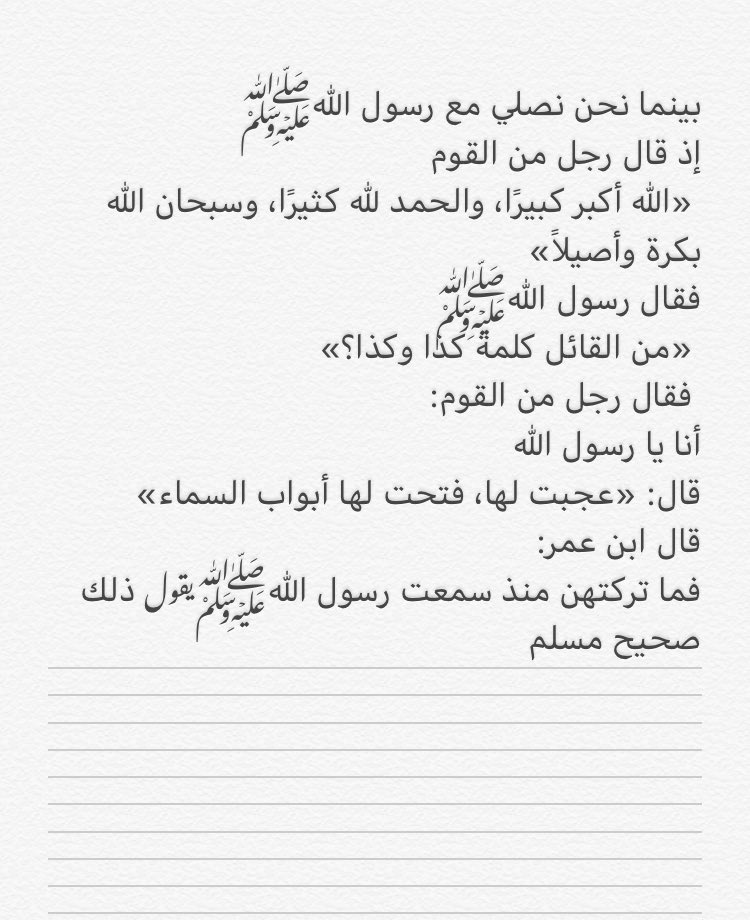 بينما نحن نصلي مع رسول الله ﷺ
إذ قال رجل من القوم
«الله أكبر كبيرًا، والحمد لله كثيرًا، وسبحان الله
بكرة وأصيلاً»
فقال رسول الله ﷺ
«من القائل كلمة كذا وكذا؟»
فقال رجل من القوم:
أنا يا رسول الله
قال: «عجبت لها، فتحت لها أبواب السماء»
قال ابن عمر:
فما تركتهن منذ سمعت رسول الله ﷺ يقول ذلك
صحيح مسلم